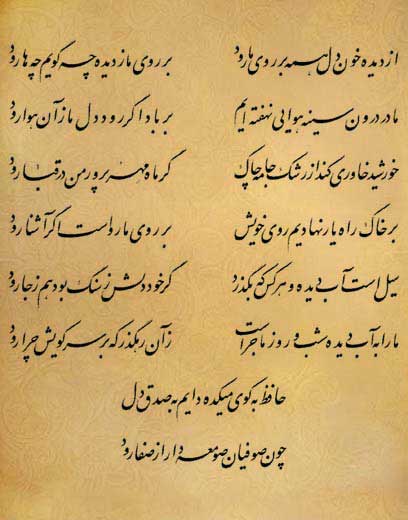 از دیده خون دل همه بر روی ما رود بر روی ما ز دیده چه گویم چه‌ها رود
ما در درون سینه هوایی نهفته‌ایم بر باد اگر رود دل ما زان هوا رود
خورشید خاوری کند از رشک جامه چاک گر ماه مهرپرور من در قبا رود
بر خاک راه یار نهادیم روی خویش بر روی ما رواست اگر آشنا رود
سیل است آب دیده و هر کس که بگذرد گر خود دلش ز سنگ بود هم ز جا رود
ما را به آب دیده شب و روز ماجراست زان رهگذر که بر سر کویش چرا رود
حافظ به کوی میکده دایم به صدق دل
چون صوفیان صومعه دار از صفا رود